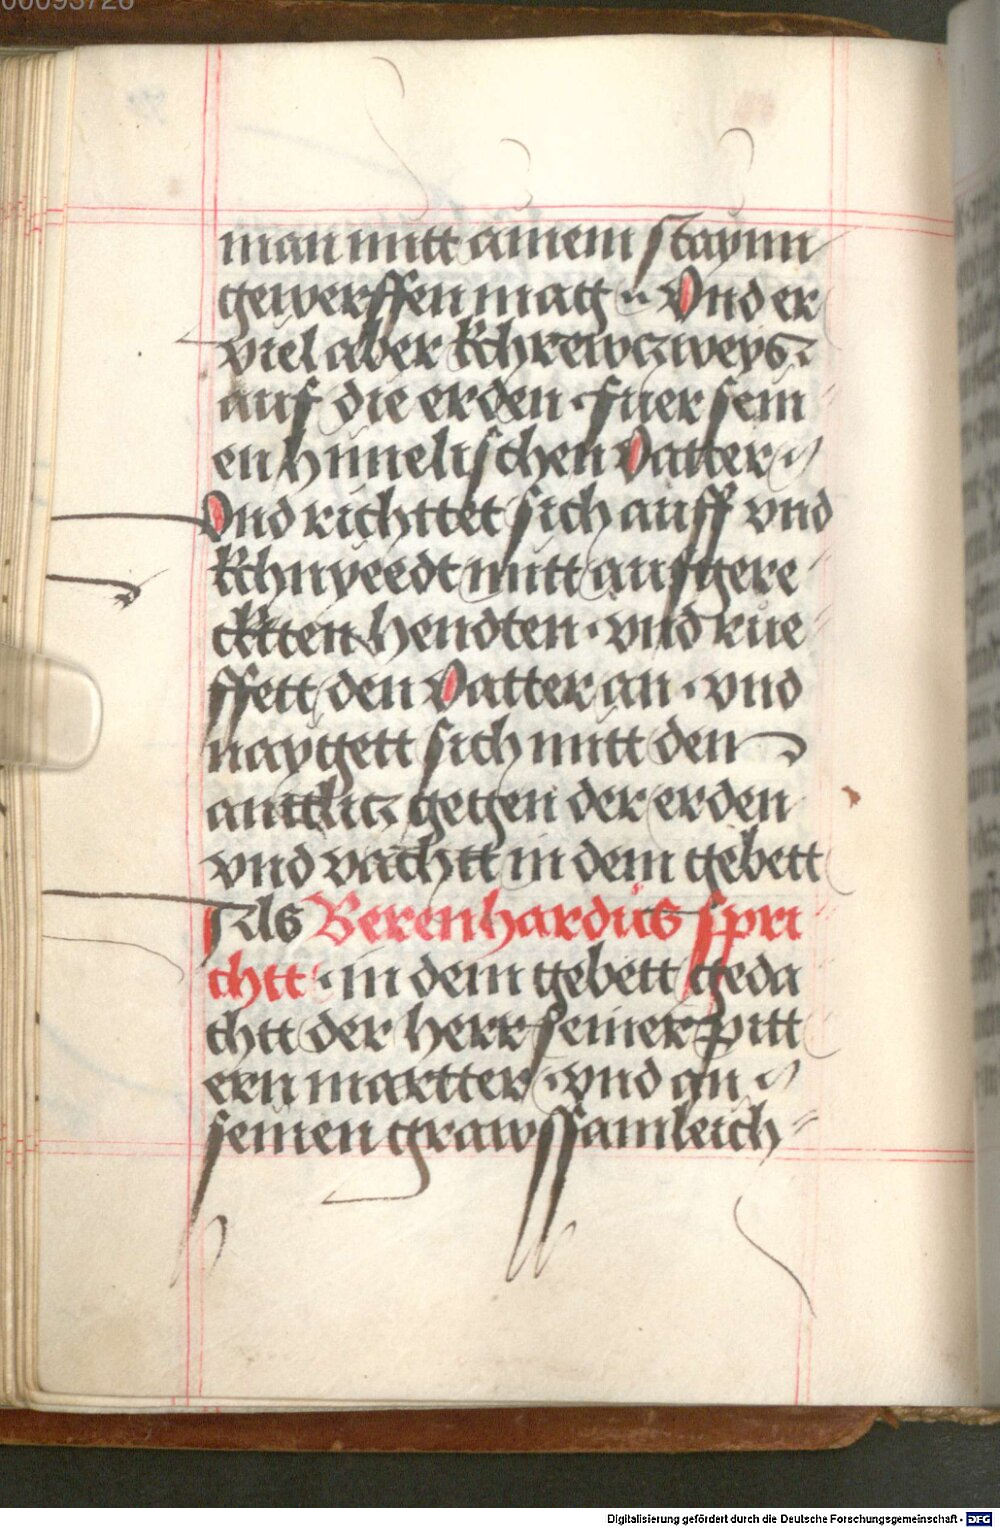 00093726
man mitt ainem staynn
gewerffen mag ·· Vnd er
viel aber khrewczweys
auf die erden · fuer sein
en himelischen Vatter ··
Vnd richttet sich auff vnd
khnyeedt mitt aufgere
ckten hendten · vnd rue
ffett den Vatter an · vnd
naygett sich mitt den
anttlicz gegen der erden
vnd vachtt in dem gebett
Als Berenhardus spri
chtt · in dem gebett geda
chtt der herr seiner pitt
ern martter · vnd an
seinen grawssamleich
Digitalisierung gefördert durch die Deutsche Forschungsgemeinschaft - DFG